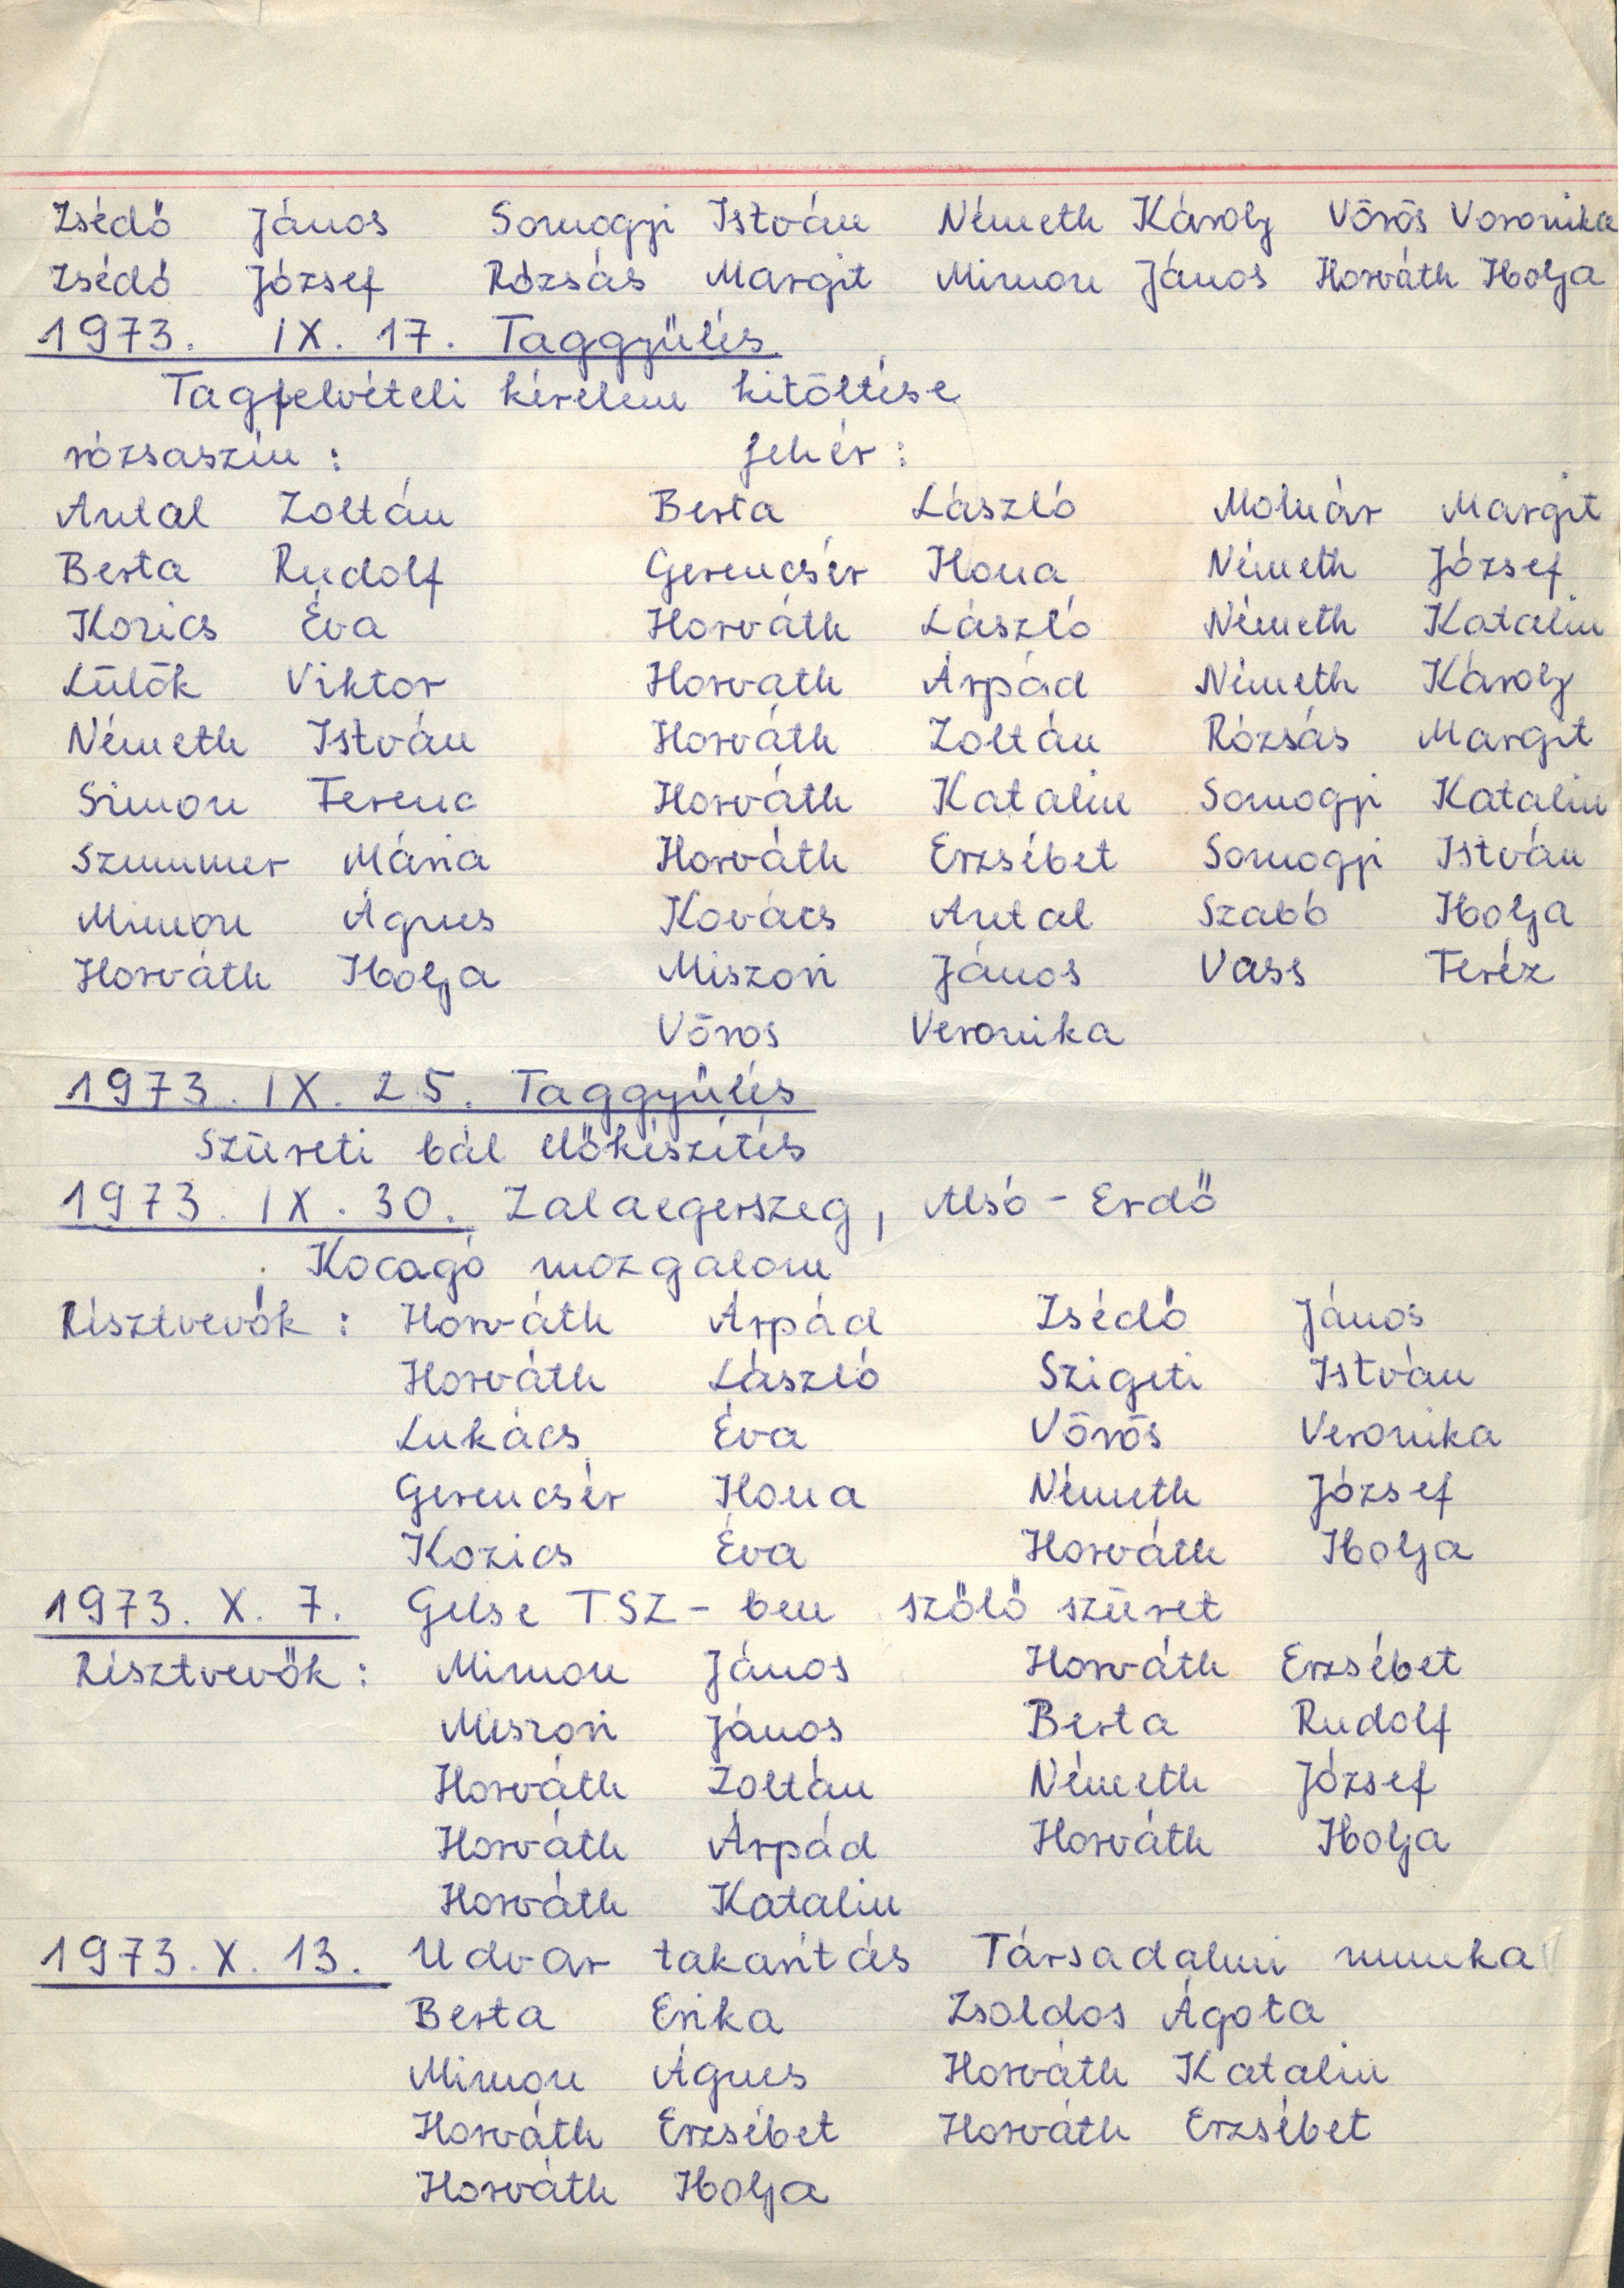 Zsédő János Somogyi István Németh Károly Vörös Voronika
Zsédó József Rózsás Margit Mimon János Horváth Ibolja
1973. IX. 17. Taggyűlés
Tagfelvételi kérelem kitöltése
rózsaszín : fehér :
Antal Zoltán Berta László Molnár Margit
Berta Rudolf Gerencsér Ilona Németh József
Kozics Éva Horváth László Németh Katalin
Lülök Viktor Horváth Árpád Németh Károly
Németh István Horváth Zoltán Rózsás Margit
Simon Ferenc Horváth Katalin Somogyi Katalin
Szummer Mária Horváth Erzsébet Somogyi István
Mimon Ágnes Kovács Antal Szabó Ibolja
Horváth Ibolja Miszori János Vass Teréz
Vörös Veronika
1973. IX. 25. Taggyűlés
Szüreti bál előkészítés
1973. IX. 30. Zalaegerszeg, Alsó - Erdő
Kocogó mozgalom
Résztvevők : Horváth Árpád Zsédő János
Horváth László Szigeti István
Lukács Éva Vörös Veronika
Gerencsér Ilona Németh József
Kozics Éva Horváth Ibolja
1973. X. 7. Gelse TSZ - ben szőlő szüret
Résztvevők : Mimon János Horváth Erzsébet
Miszori János Berta Rudolf
Horváth Zoltán Németh József
Horváth Árpád Horváth Ibolja
Horváth Katalin
1973. X. 13. Udvar takarítás Társadalmi munka
Berta Erika Zsoldos Ágota
Mimon Ágnes Horváth Katalin
Horváth Erzsébet Horváth Erzsébet
Horváth Ibolja